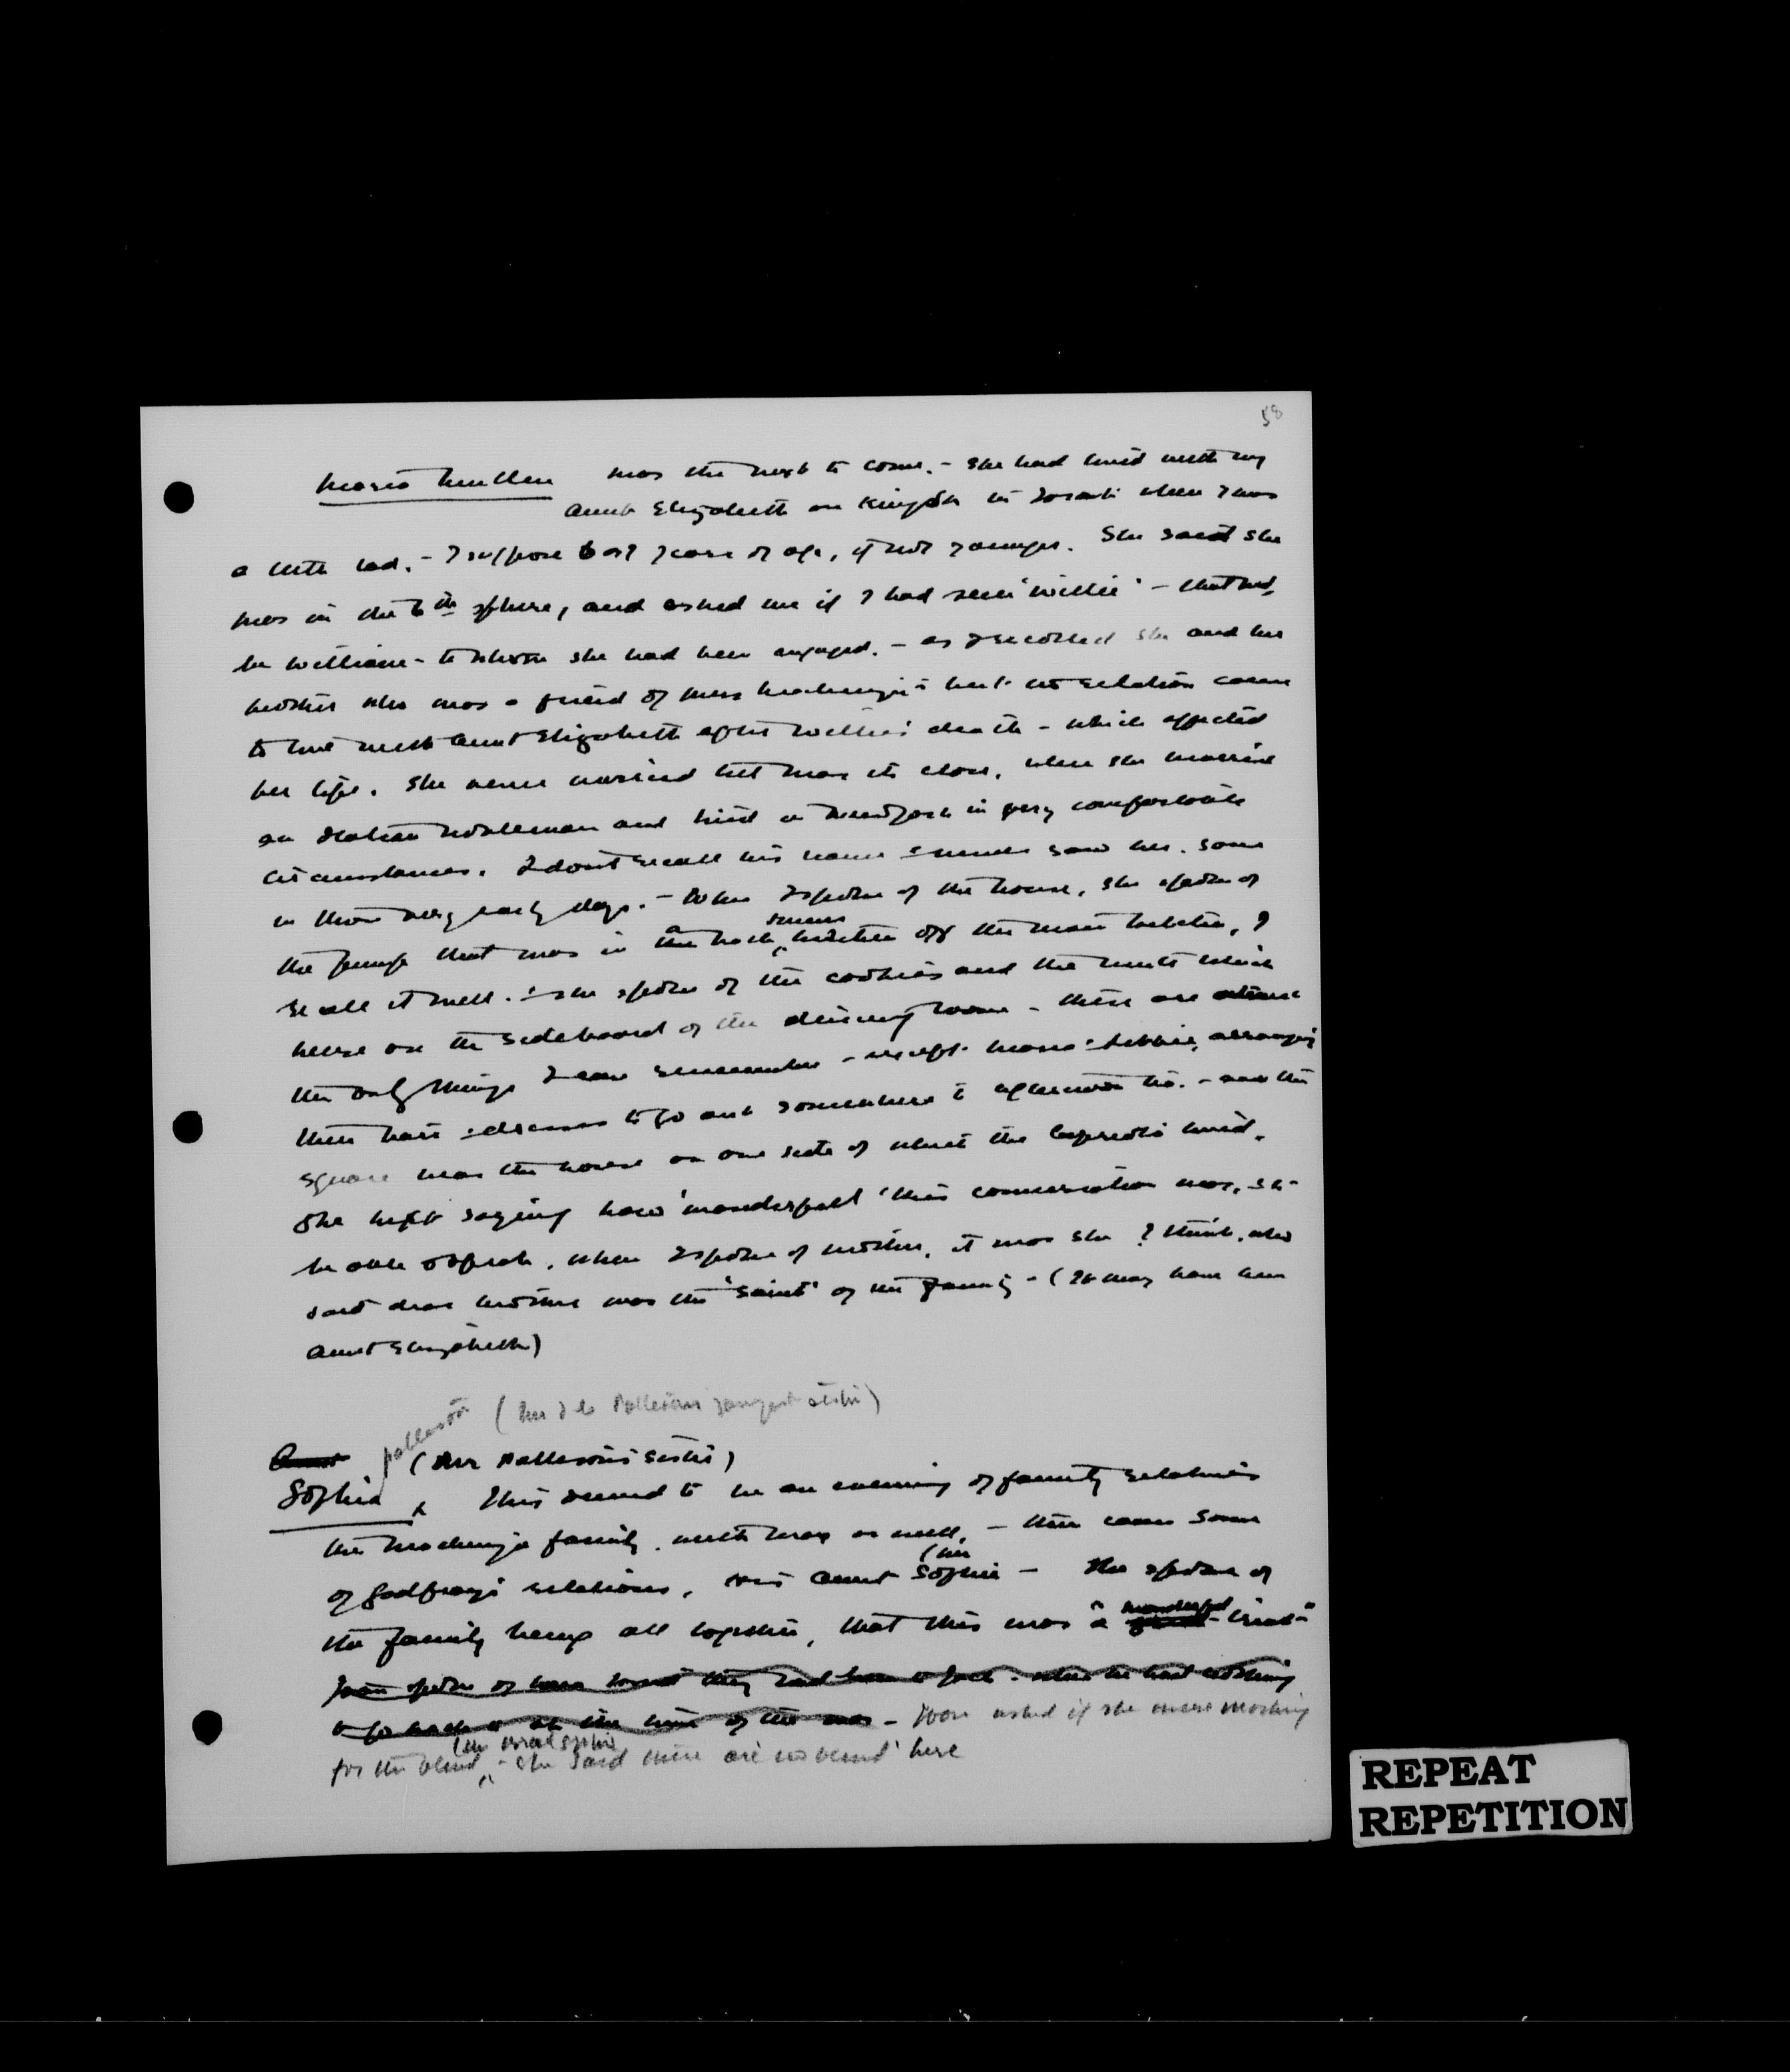 58
Maria Mullen was the next to come. - She had lived with my
Aunt Elizabeth on King St. in Toronto when I was
a little lad. - I suppose 6 or 7 years of age, if not younger. She said she
was in the 6th sphere, and asked me if I had seen 'Willie' -
be William - to whom she had been engaged. - as I recollect she and her
mother who was a friend of Mrs Mackenzie's but no relation came
to live with Aunt Elizabeth after Willie's death - which affected
her life. She never married till near its close, when she married
an Italian nobleman and lived in New York in very comfortable
circumstances. I don't recall his name I never saw her. Save
in those very early days. - When I spoke of the house, she spoke of
the pump that was in a the back, summer kitchen off the main kitchen, I
recall it well. - She spoke of the cookies and the nuts which
were on the sideboard of the dining room - these are almost
the only things I can remember - except Maria & Libbie, arranging
their hair & dresses to go out somewhere to afternoon tea. - and the
square near the house on one side of which the lived.
She kept saying how 'wonderful' this conversation was, &c -
be able to speak. When I spoke of mother, it was she I think, who
said dear mother was the 'saint' of the family - (It may have been
Aunt Elizabeth)
Patterson (Mrs J C Patterson's youngest sister)
Aunt (Mrs Patterson's sister)
Sophia, This seemed to be an evening of family relations
the Mackenzie family, with Max as well, - then came some
of Godfroy's relations, his Aunt Sophie - (her She spoke of
the family being all together, that this was "a wonderful great - treat"
Joan spoke of how sweet they had been to Jack - when he had nothing
to go back to at the time of the war - Joan asked if she were working
for the blind, (her friend Sophie - She said there are 'no blind' here
REPEAT
REPETITION